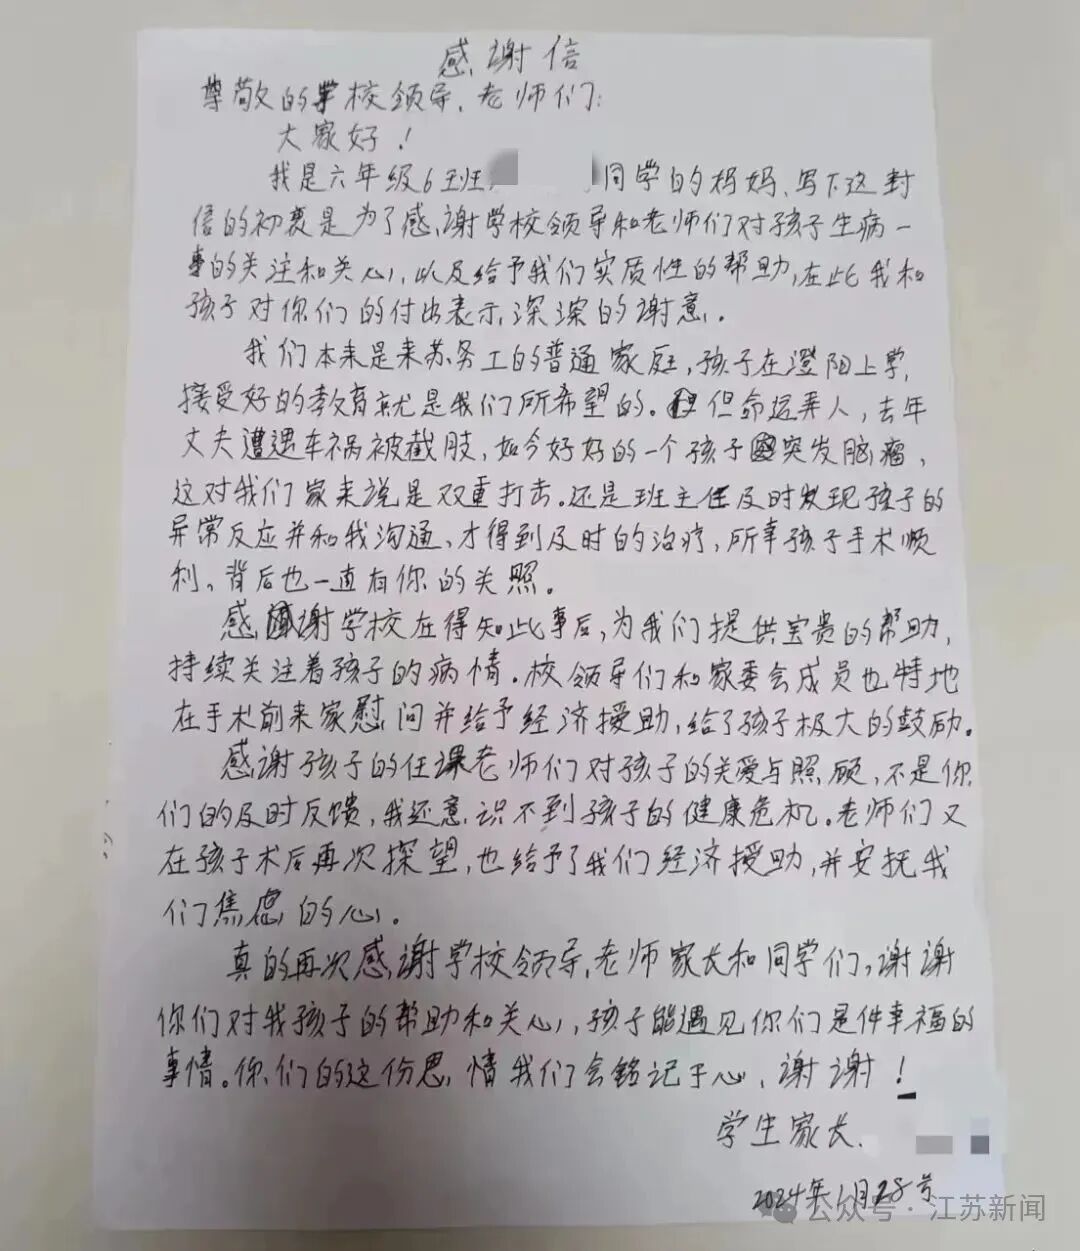 感谢信
尊敬的学校领导、老师们:
大家好!
我是六年级6班 同学的妈妈、写下这封
信的初衷是为了感谢学校领导和老师们对孩子生病一
事的关注和关心,以及给予我们实质性的帮助,在此我和
孩子对你们的付出表示深深的谢意.
我们本来是来苏务工的普通家庭,孩子在澄阳上学,
接受好的教育就是我们所希望的。但命运弄人,去年
丈夫遭遇车祸被截肢,如今好好的一个孩子突发脑瘤,
这对我们家来说是双重打击。还是班主任及时发现孩子的
异常反应并和我沟通、才得到及时的治疗,所幸孩子手术顺
利。背后也一直有你的关照。
感谢学校在得知此事后,为我们提供宝贵的帮助,
持续关注着孩子的病情。校领导们和家委会成员也特地
在手术前来家慰问并给予经济援助,给了孩子极大的鼓励。
感谢孩子的任课老师们对孩子的关爱与照顾,不是你
们的及时反馈,我还意识不到孩子的健康危机。老师们又
在孩子术后再次探望,也给予了我们经济援助,并安抚我
们焦虑的心。
真的再次感谢学校领导,老师家长和同学们,谢谢
你们对我孩子的帮助和关心,孩子能遇见你们是件幸福的
事情。你们的这份恩情我们会铭记于心、谢谢!
学生家长.
2024年1月28号
公众号·江苏新闻